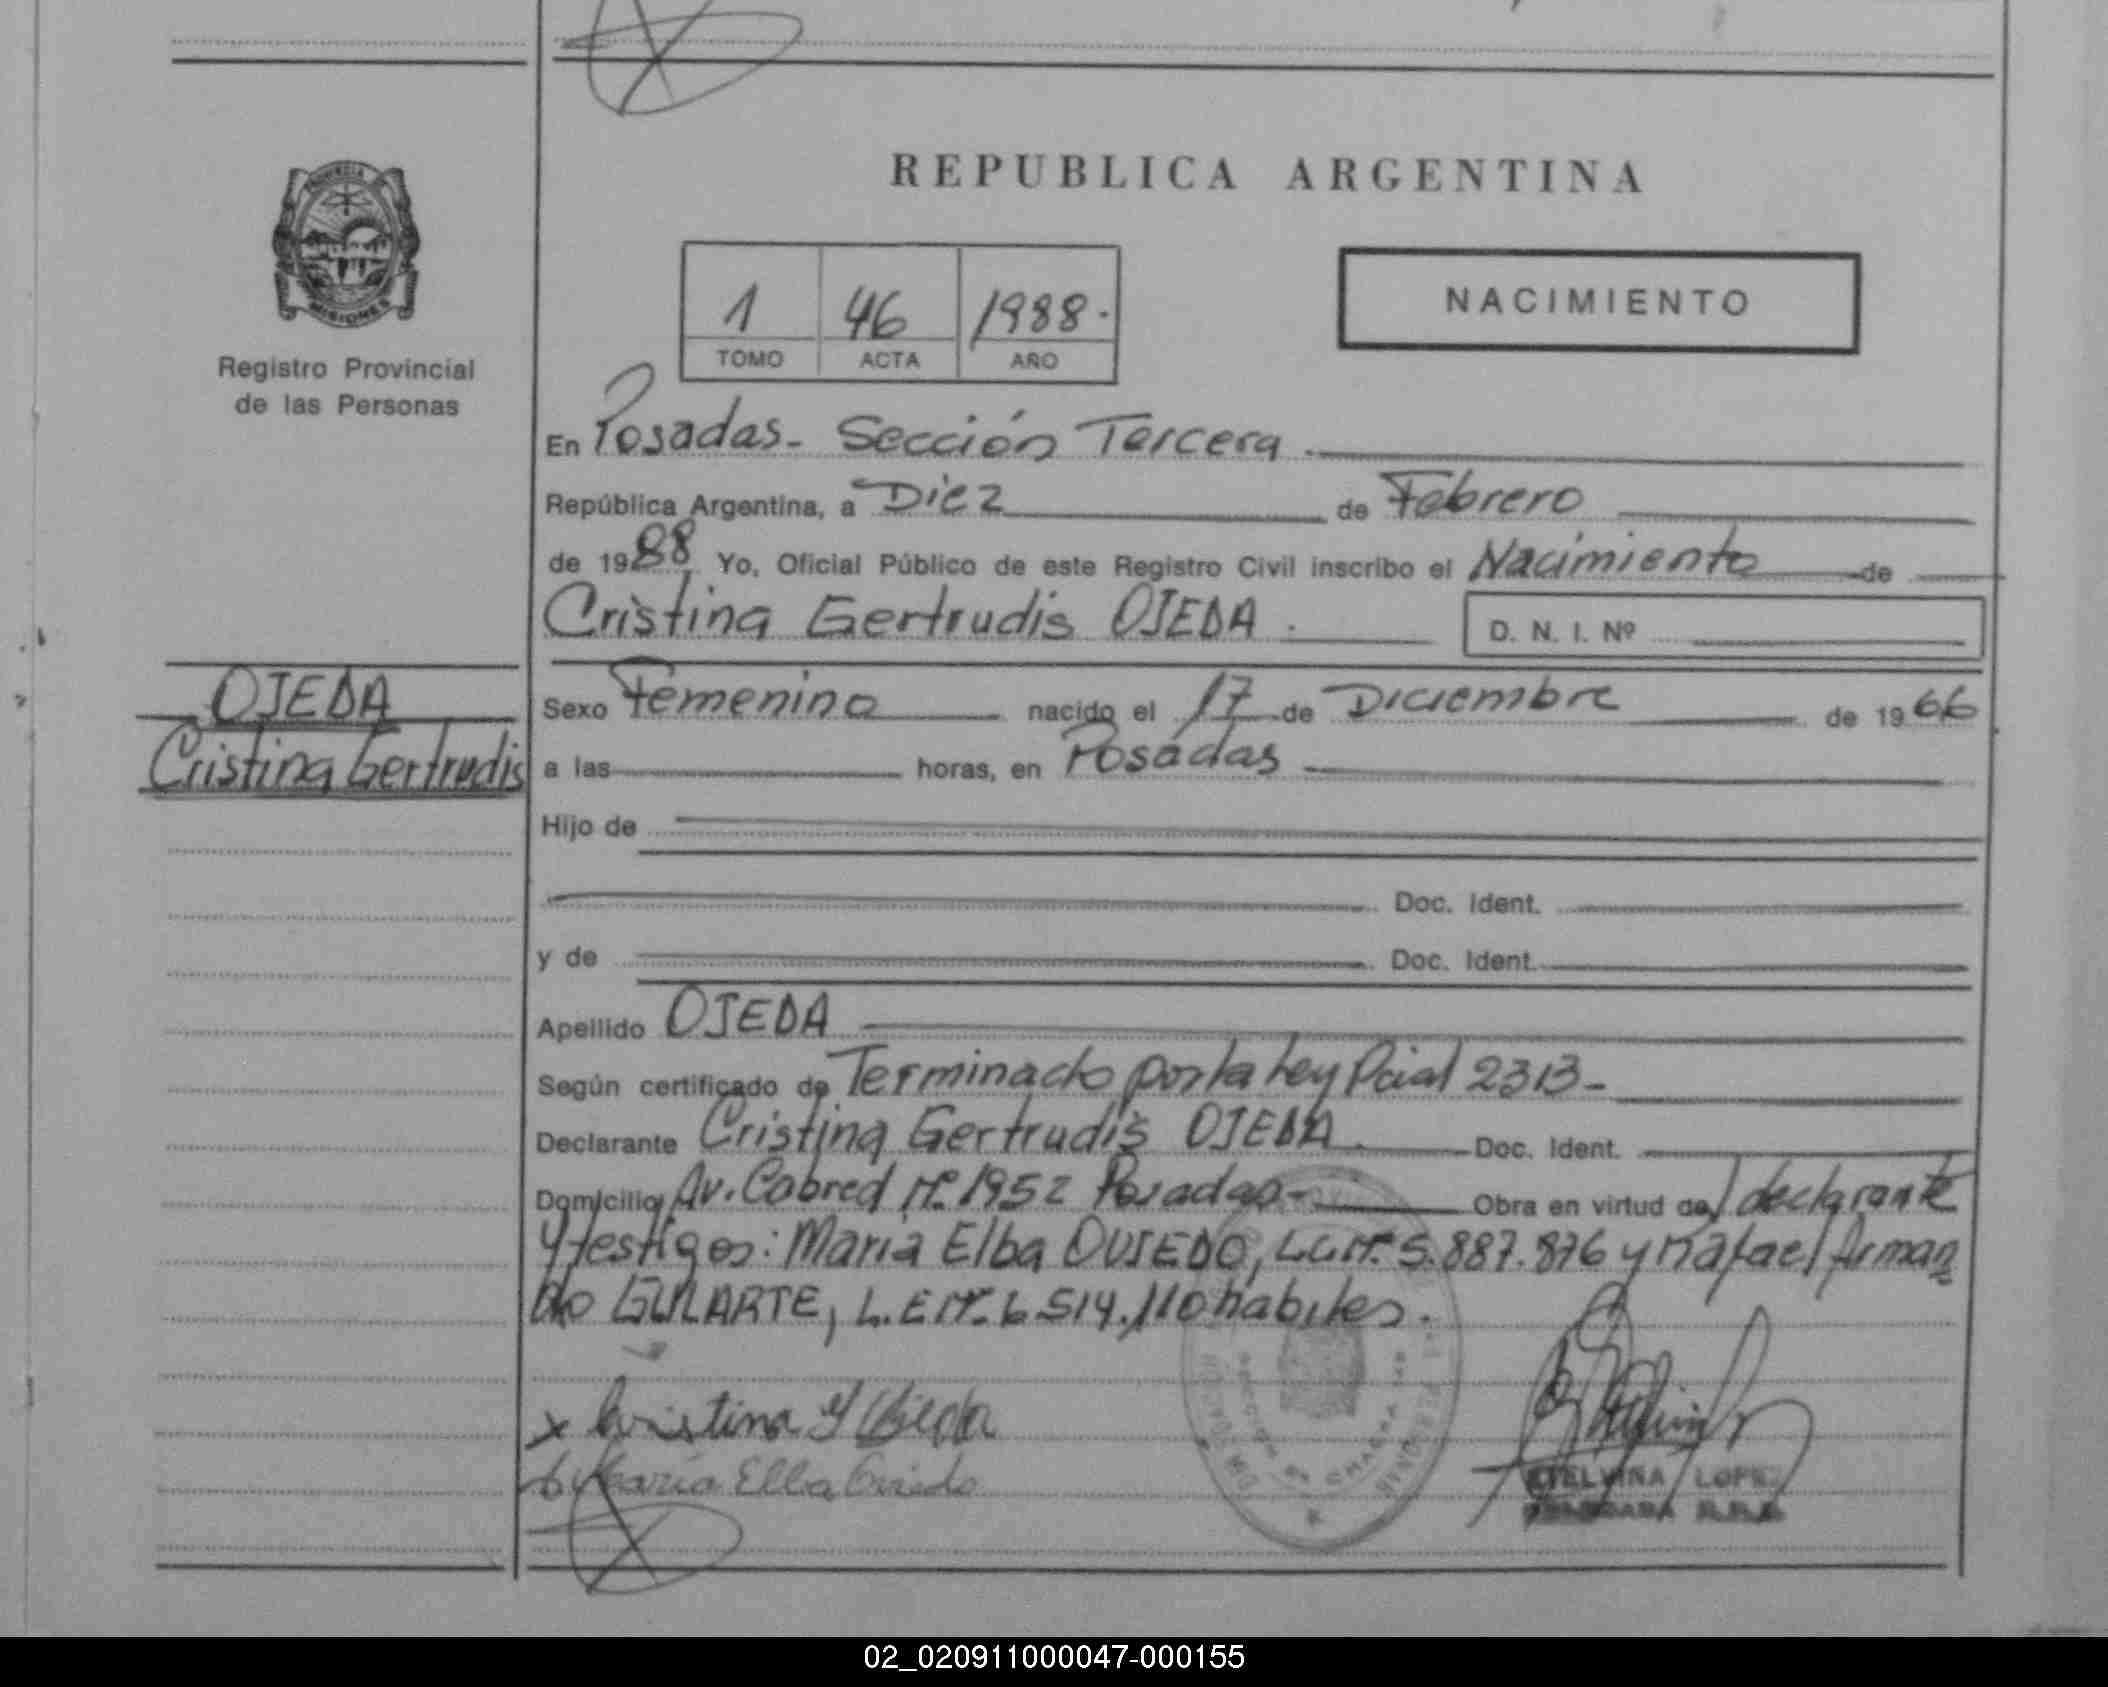 REPUBLICA ARGENTINA
PROVINCIA DE
MISIONES
Registro Provincial
de las Personas
1 46 1988.
TOMO ACTA AÑO
NACIMIENTO
En Posadas- Sección Tercera.
República Argentina, a Diez de Febrero
de 1988 Yo, Oficial Público de este Registro Civil inscribo el Nacimiento de
Cristina Gertrudis OJEDA. D. N. I. Nº
OJEDA
Cristina Gertrudis
Sexo Femenino nacido el 17 de Diciembre de 1966
a las horas, en Posadas
Hijo de
Doc. Ident.
y de Doc. Ident.
Apellido OJEDA
Según certificado de Terminado por la Ley Pcial 2313-
Declarante Cristina Gertrudis OJEDA. Doc. Ident.
Domicilio Av. Cabred Nº 1952 Posadas- Obra en virtud de declarante
y testigos: Maria Elba OVIEDO, L.C Nº 5.887.876 y Rafael Arman
do GULARTE, L.E Nº 6 514.110 habiles.
x Cristina G Ojeda
Maria Elba Oviedo
ETELVINA LOPEZ
DELEGADA R.P.P.
02_020911000047-000155